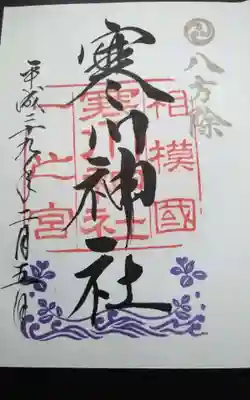 八方除
相模國
寒川神社
一之宮
寒川神社
平成二十九年二月五日